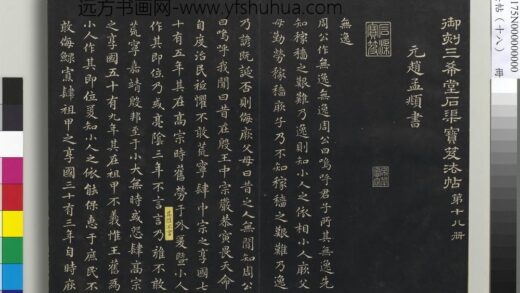 远方书画网-www.yfshuhua.com
175N000000000
帖(十八)
御刻三希堂石渠寶笈法帖 第十八册
元趙孟頫書
無逸
周公作無逸周公曰嗚呼君子所其無逸先
知稼穡之艱難乃逸則知小人之依相小人厥父
母勤勞稼穡厥子乃不知稼穡之艱難乃逸
乃諺既誕否則侮厥父母曰昔之人無聞知周公
曰嗚呼我聞曰昔在殷王中宗嚴恭寅畏天命
自度治民祗懼不敢荒寧肆中宗之享國七
十有五年其在高宗時舊勞于外爰暨小人
作其即位乃或亮陰三年不言言乃雍不敢
荒寧嘉靖殷邦至于小大無時或怨肆高宗
之享國五十有九年其在祖甲不義惟王舊為
小人作其即位爰知小人之依能保惠于庶民不
敢侮鰥寡肆祖甲之享國三十有三年自時厥